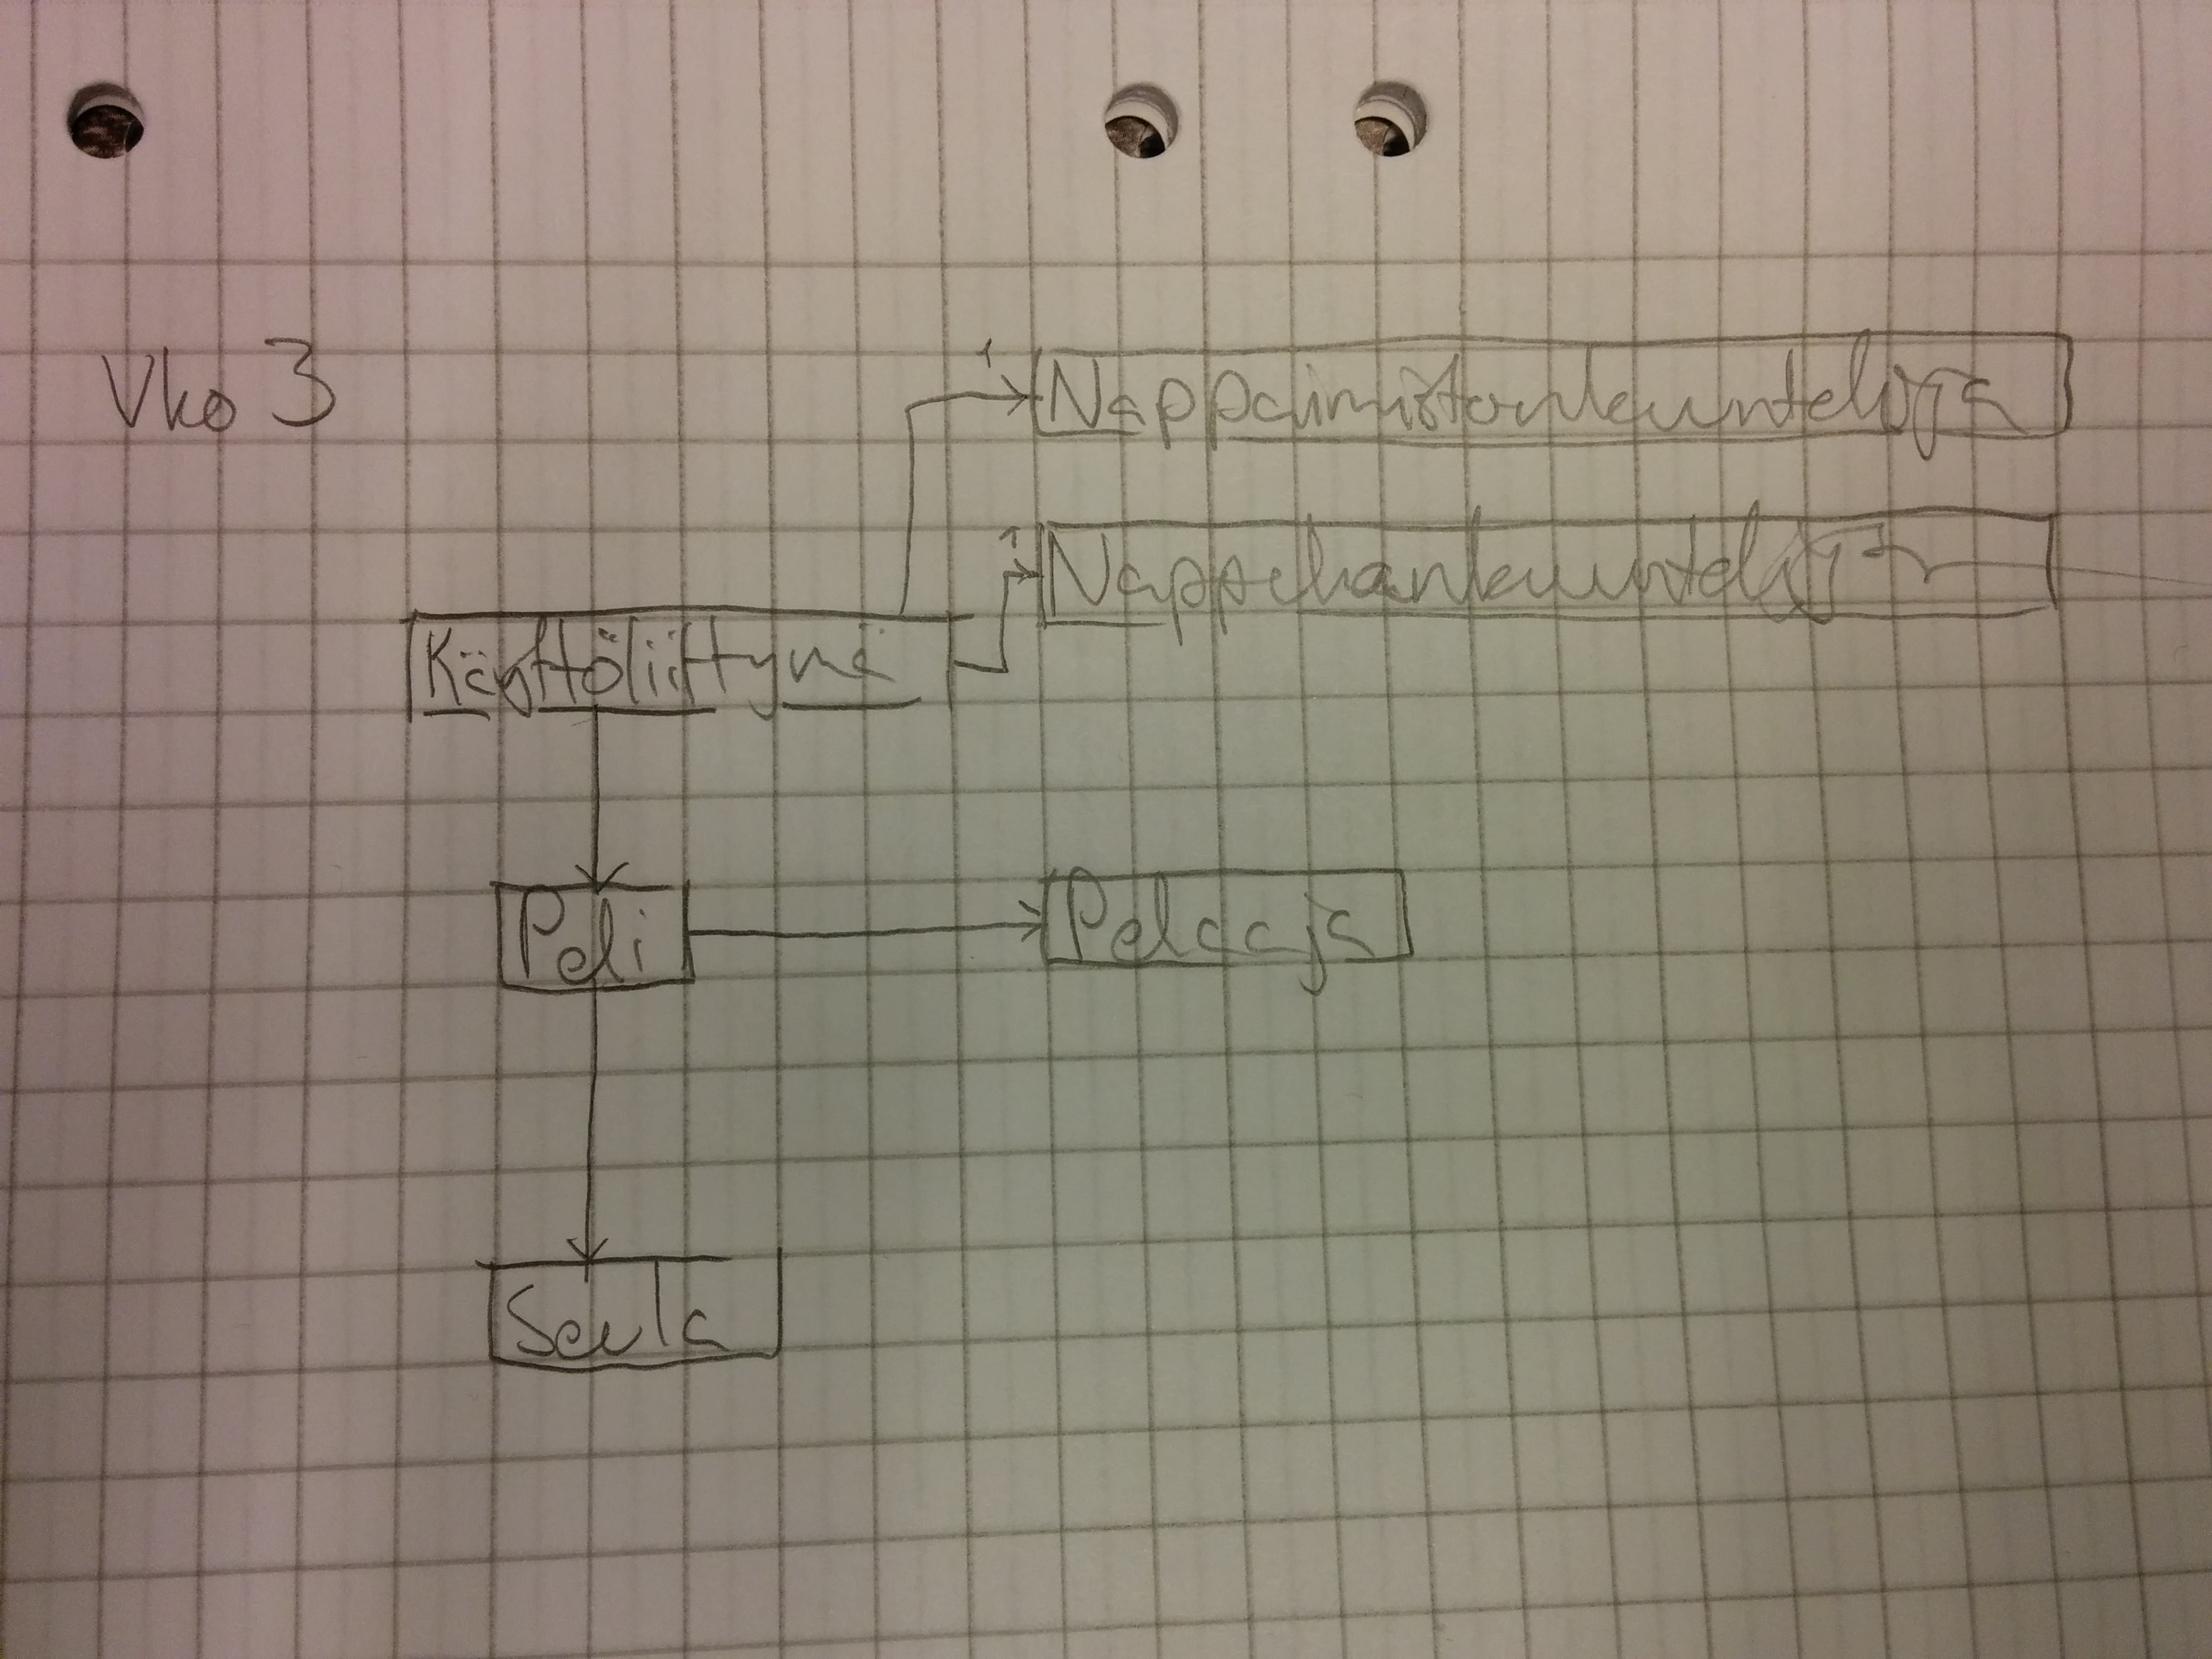 Vko 3
1
Nappaimistonkuuntelija
1
Nappulankuuntelija
Käyttöliittymä
Peli
Pelaaja